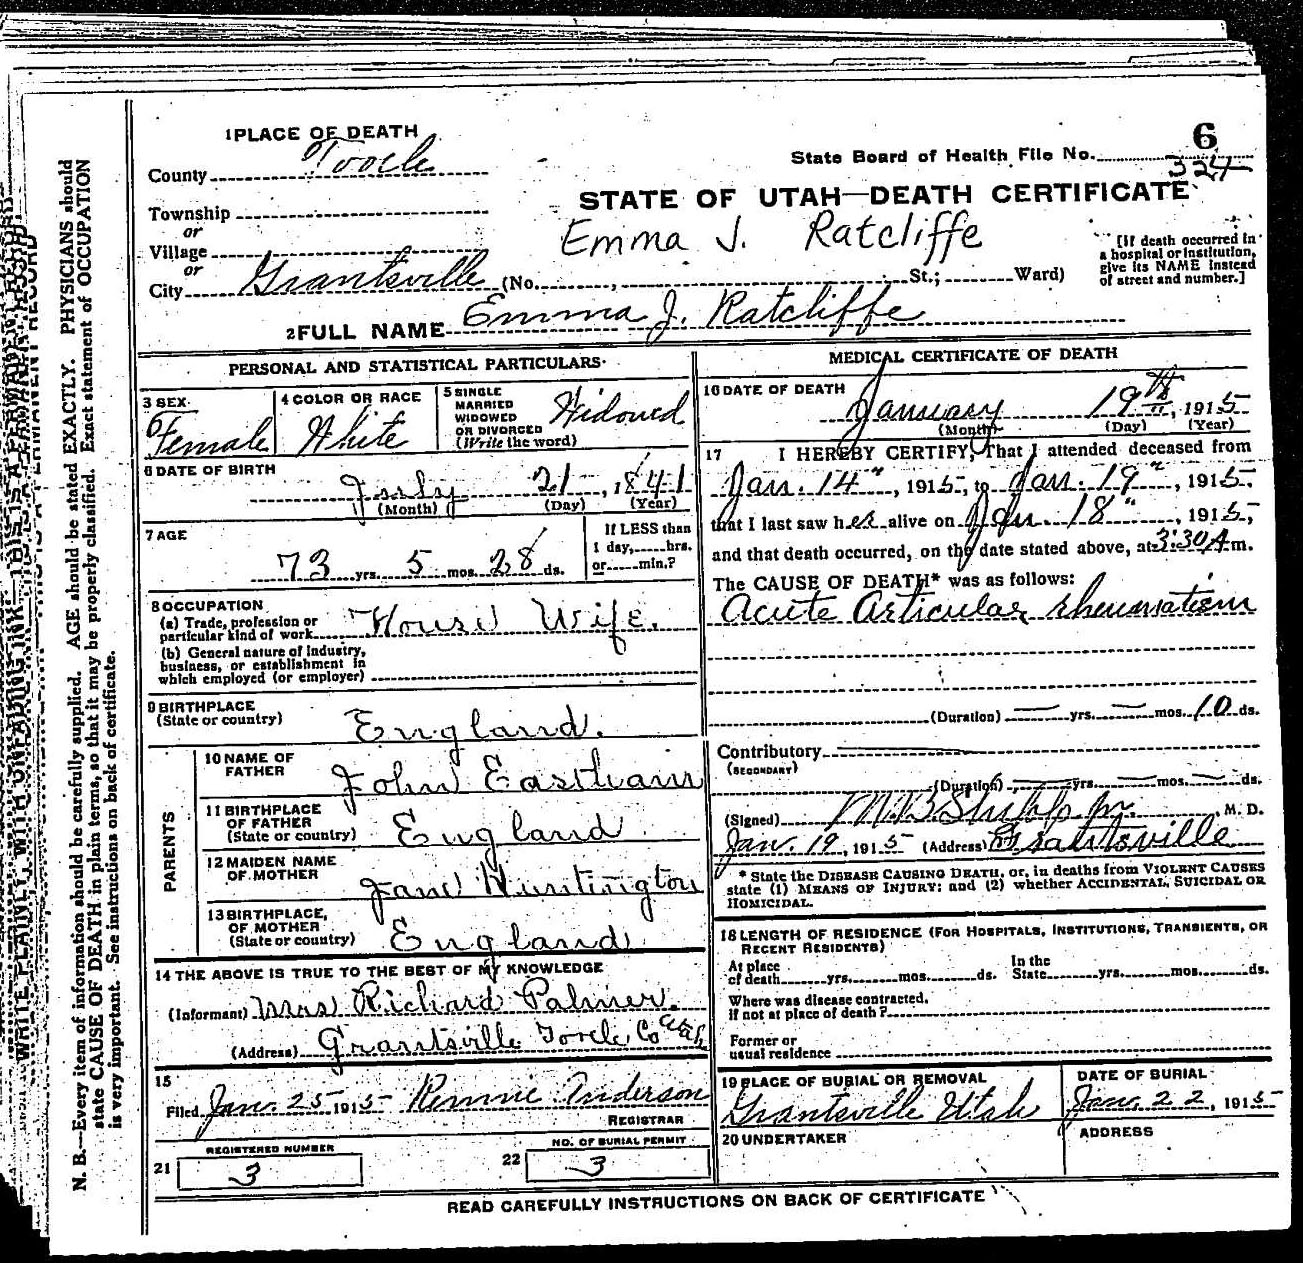 1 PLACE OF DEATH
6
County Tooele
State Board of Health File No. 324
Township
or
STATE OF UTAH—DEATH CERTIFICATE
Village
or
Emma J. Ratcliffe
City Grantsville (No. , St.; Ward)
[If death occurred in
a hospital or institution,
give its NAME instead
of street and number.]
2 FULL NAME Emma J. Ratcliffe
PERSONAL AND STATISTICAL PARTICULARS
3 SEX
Female
4 COLOR OR RACE
White
5 SINGLE
MARRIED
WIDOWED
OR DIVORCED
(Write the word)
Widowed
6 DATE OF BIRTH
July 21, 1841
(Month) (Day) (Year)
7 AGE
73 yrs. 5 mos. 28 ds.
If LESS than
1 day, hrs.
or min.?
8 OCCUPATION
(a) Trade, profession or
particular kind of work House Wife.
(b) General nature of Industry,
business, or establishment in
which employed (or employer)
9 BIRTHPLACE
(State or country)
England.
PARENTS
10 NAME OF
FATHER
John Eastham
11 BIRTHPLACE
OF FATHER
(State or country)
England
12 MAIDEN NAME
OF MOTHER
Jane Huntington
13 BIRTHPLACE,
OF MOTHER
(State or country)
England
14 THE ABOVE IS TRUE TO THE BEST OF MY KNOWLEDGE
(Informant) Mrs Richard Palmer.
(Address) Grantsville Tooele Co Utah
15
Filed Jan. 25 1915 Anderson
REGISTRAR
REGISTERED NUMBER
21 3
NO. OF BURIAL PERMIT
22 3
MEDICAL CERTIFICATE OF DEATH
16 DATE OF DEATH
January 19th, 1915
(Month) (Day) (Year)
17 I HEREBY CERTIFY, That I attended deceased from
Jan. 14", 1915, to Jan. 19", 1915,
that I last saw her alive on Jan. 18", 1915,
and that death occurred, on the date stated above, at 3:30 A m.
The CAUSE OF DEATH* was as follows:
Acute Articular rheumatism
(Duration) — yrs. — mos. 10 ds.
Contributory
(SECONDARY)
(Duration) — yrs. — mos. — ds.
(Signed) M. D.
Jan. 19, 1915 (Address) Grantsville
* State the DISEASE CAUSING DEATH, or, in deaths from VIOLENT CAUSES
state (1) MEANS OF INJURY; and (2) whether ACCIDENTAL, SUICIDAL OR
HOMICIDAL.
18 LENGTH OF RESIDENCE (FOR HOSPITALS, INSTITUTIONS, TRANSIENTS, OR
RECENT RESIDENTS)
At place
of death yrs. mos. ds.
In the
State yrs. mos. ds.
Where was disease contracted.
If not at place of death?
Former or
usual residence
19 PLACE OF BURIAL OR REMOVAL
Grantsville Utah
DATE OF BURIAL
Jan. 22, 1915
20 UNDERTAKER
ADDRESS
READ CAREFULLY INSTRUCTIONS ON BACK OF CERTIFICATE
N. B.—Every item of information should be carefully supplied. AGE should be stated EXACTLY. PHYSICIANS should
state CAUSE OF DEATH in plain terms, so that it may be properly classified. Exact statement of OCCUPATION
is very important. See instructions on back of certificate.